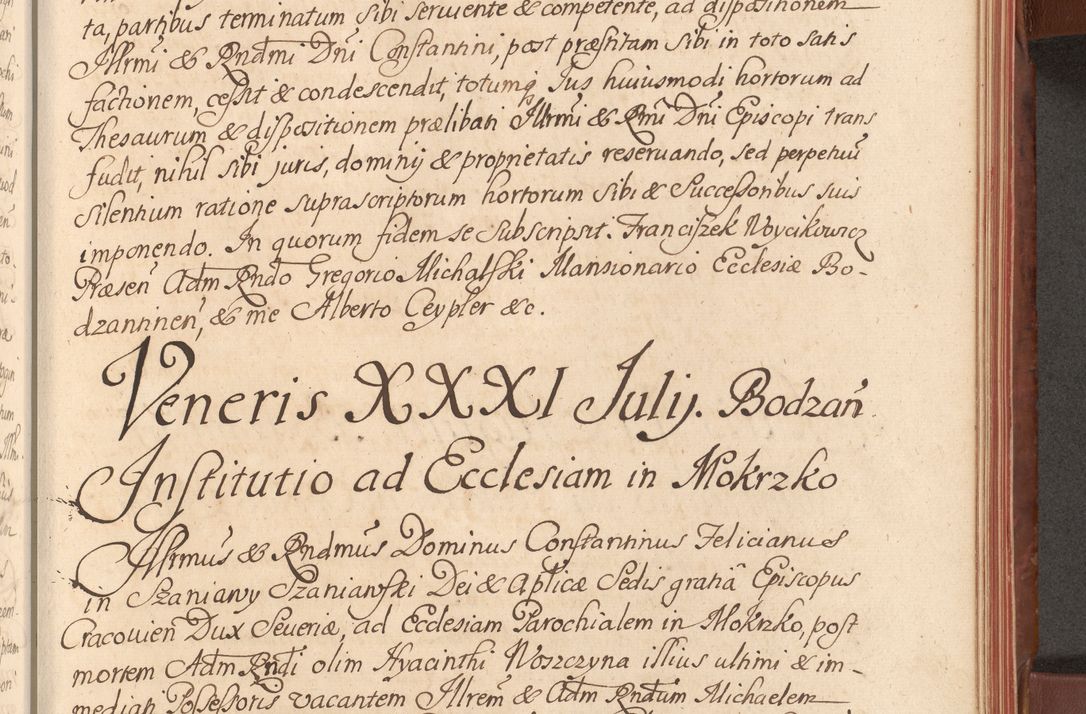 ta, partibus terminatum sibi serviente & competente, ad dispositionem
Illrmi & Rndmi Dni Constantini, post præstitam sibi in toto satis
factionem, cessit & condescendit, totumq Jus huiusmodi hortorum ad
Thesaurum & dispositionem prælibati Illrmi & Rmi Dni Episcopi trans
fudit, nihil sibi juris, dominij & proprietatis reseruando, sed perpetuũ
silentium ratione suprascriptorum hortorum sibi & Successoribus suis
imponendo. In quorum fidem se subscripsit. Franciszek Woycikowicz
Præsen Adm Rndo Gregorio Michalski Mansionario Ecclesiæ Bo-
dzantinen, & me Alberto Ceypler &c.
Veneris XXXI Julij. Bodzań
Institutio ad Ecclesiam in Mokrzko
Illrmus & Rndmus Dominus Constantinus Felicianus
in Szaniawy Szaniawski Dei & Aplicæ Sedis gratiâ Episcopus
Cracovien Dux Severiæ, ad Ecclesiam Parochialem in Mokrzko, post
mortem Adm Rndi olim Hyacinthi Woszczyna illius ultimi & im-
mediati Possessoris vacantem Illrem & Adm Rndum Michaelem